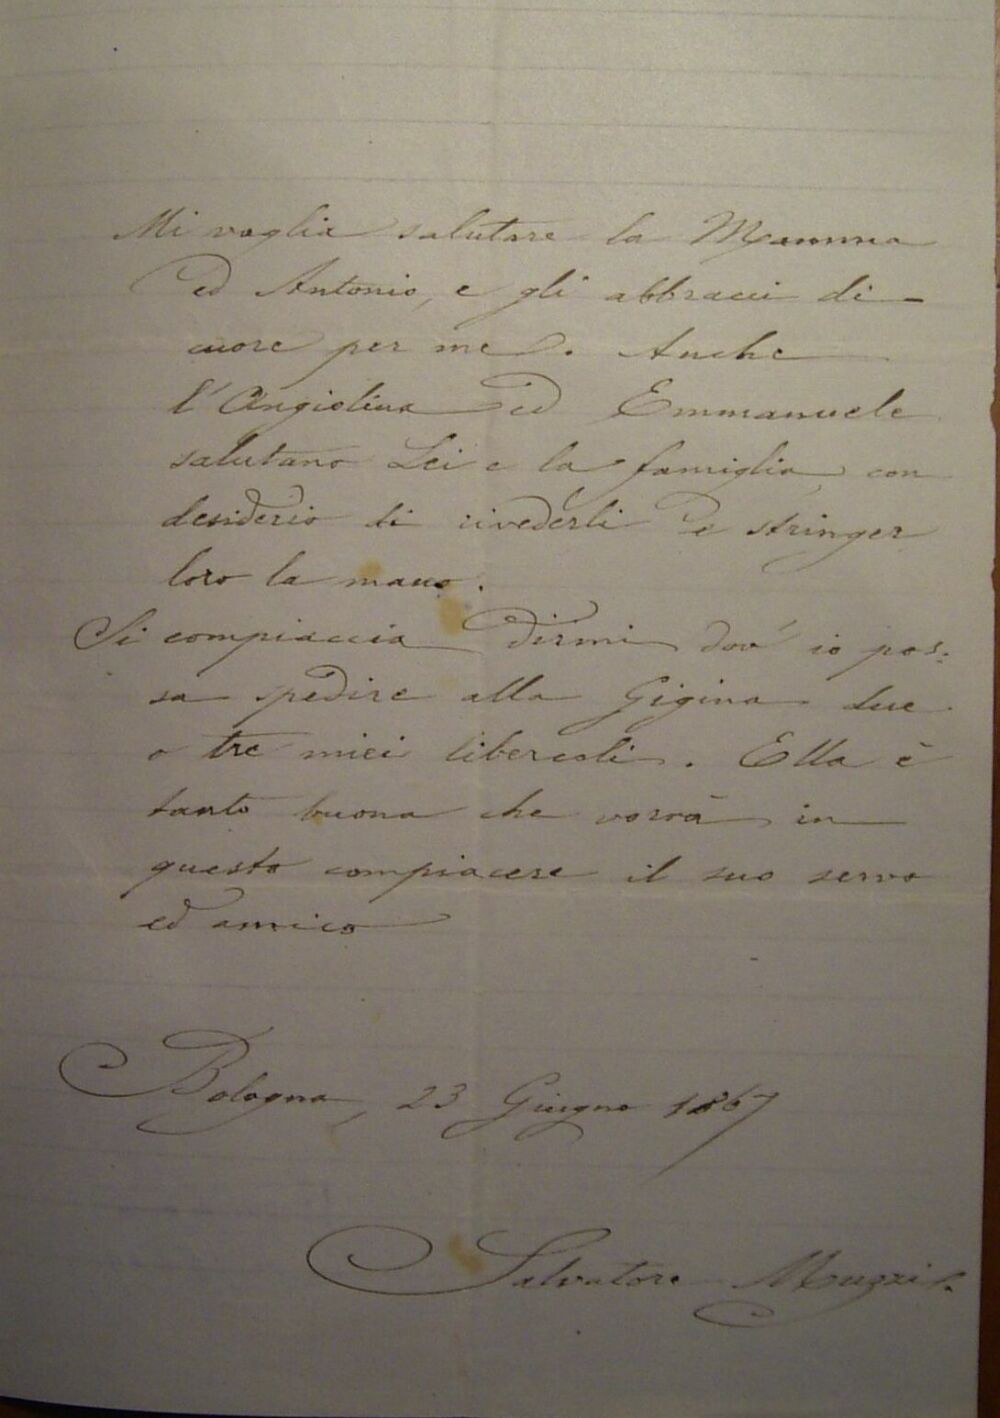 Mi voglia salutare la Mamma
ed Antonio, e gli abbracci di
cuore per me. Anche
l'Angiolina ed Emmanuele
salutano Lei e la famiglia, con
desiderio di rivederli e stringer
loro la mano.
Si compiaccia dirmi dov' io pos:
sa spedire alla Gigina due
o tre miei libercoli. Ella è
tanto buona che vorrà in
questo compiacere il suo servo
ed amico
Bologna, 23 Giugno 1867
Salvatore Muzzi